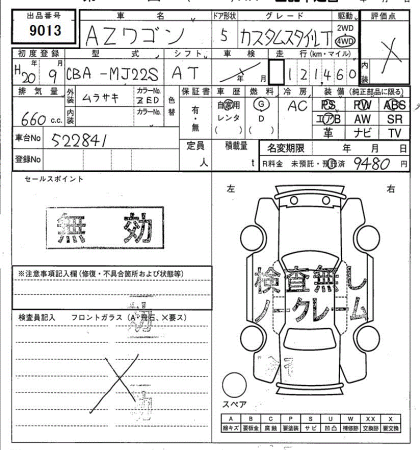 出品番号 車名 ドア形状 グレード 駆動 評価点
9013 AZワゴン 5 カスタムスタイルT 2WD 4WD ×
初度登録 型式 シフト 車検 走行(km・マイル) 内装
H20年9月 CBA-MJ22S AT 年 月 121,460
排気量 外装 ムラサキ カラーNo. ZED 色替 保証書 車歴 燃料 冷房 装備(純正部品に限る)
660c.c. 内装 カラーNo. 有・無 自家用 レンタ ( ) G D ( ) AC PS PW ABS
エアB AW SR
革 ナビ TV
車台No 522841
登録No 定員 人 積載量 t 名変期限 年 月 日
R料金 未預託・預託済 9480円
セールスポイント
左 右
無効
※注意事項記入欄(修復・不具合箇所および状態等)
検査無し
ノークレーム
検査員記入 フロントガラス(A・飛石、×要ス)
×
スペア
A B C P S U W XX X
線キズ 要板金 腐触 要塗装 サビ 凹凸 補修跡 交換跡 要交換